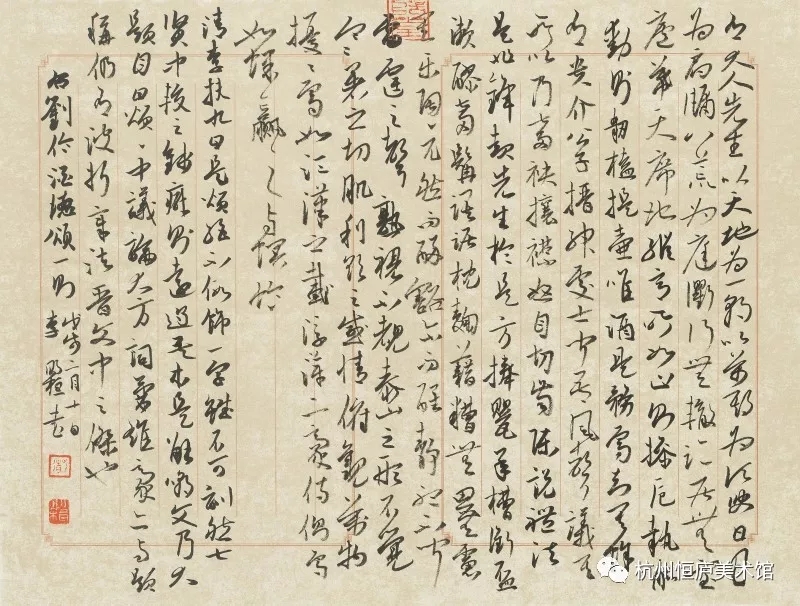 有大人先生以天地为一朝以萬期为須臾日月
为扃牖八荒为庭衢行無轍跡居無室
廬幕天席地縱意所如止則操卮執觚
動則挈榼提壺唯酒是務焉知其餘
有貴介公子搢紳處士聞吾風聲議其
所以乃奮袂攘襟怒目切齒陳說禮法
是非鋒起先生於是方捧甖承槽銜杯
漱醪奮髯踑踞枕麴藉糟無思慮
其樂陶〻兀然而醉豁尔而醒靜聽不聞
雷霆之聲熟視不覩泰山之形不覺
寒暑之切肌利欲之感情俯觀萬物
擾〻焉如江漢之載浮萍二豪侍側焉
如蜾蠃之與螟蛉
清李扶九曰是頌絕不修飾一字不可刻然七
賢中較之則遠過是文乃大
題目曰頌〻中議論大方詞藻雄豪亦與題
稱仍有波折章法晋文中之傑也
右劉伶酒德頌一則
戊戌二月十日
李書
杭州恒庐美术馆